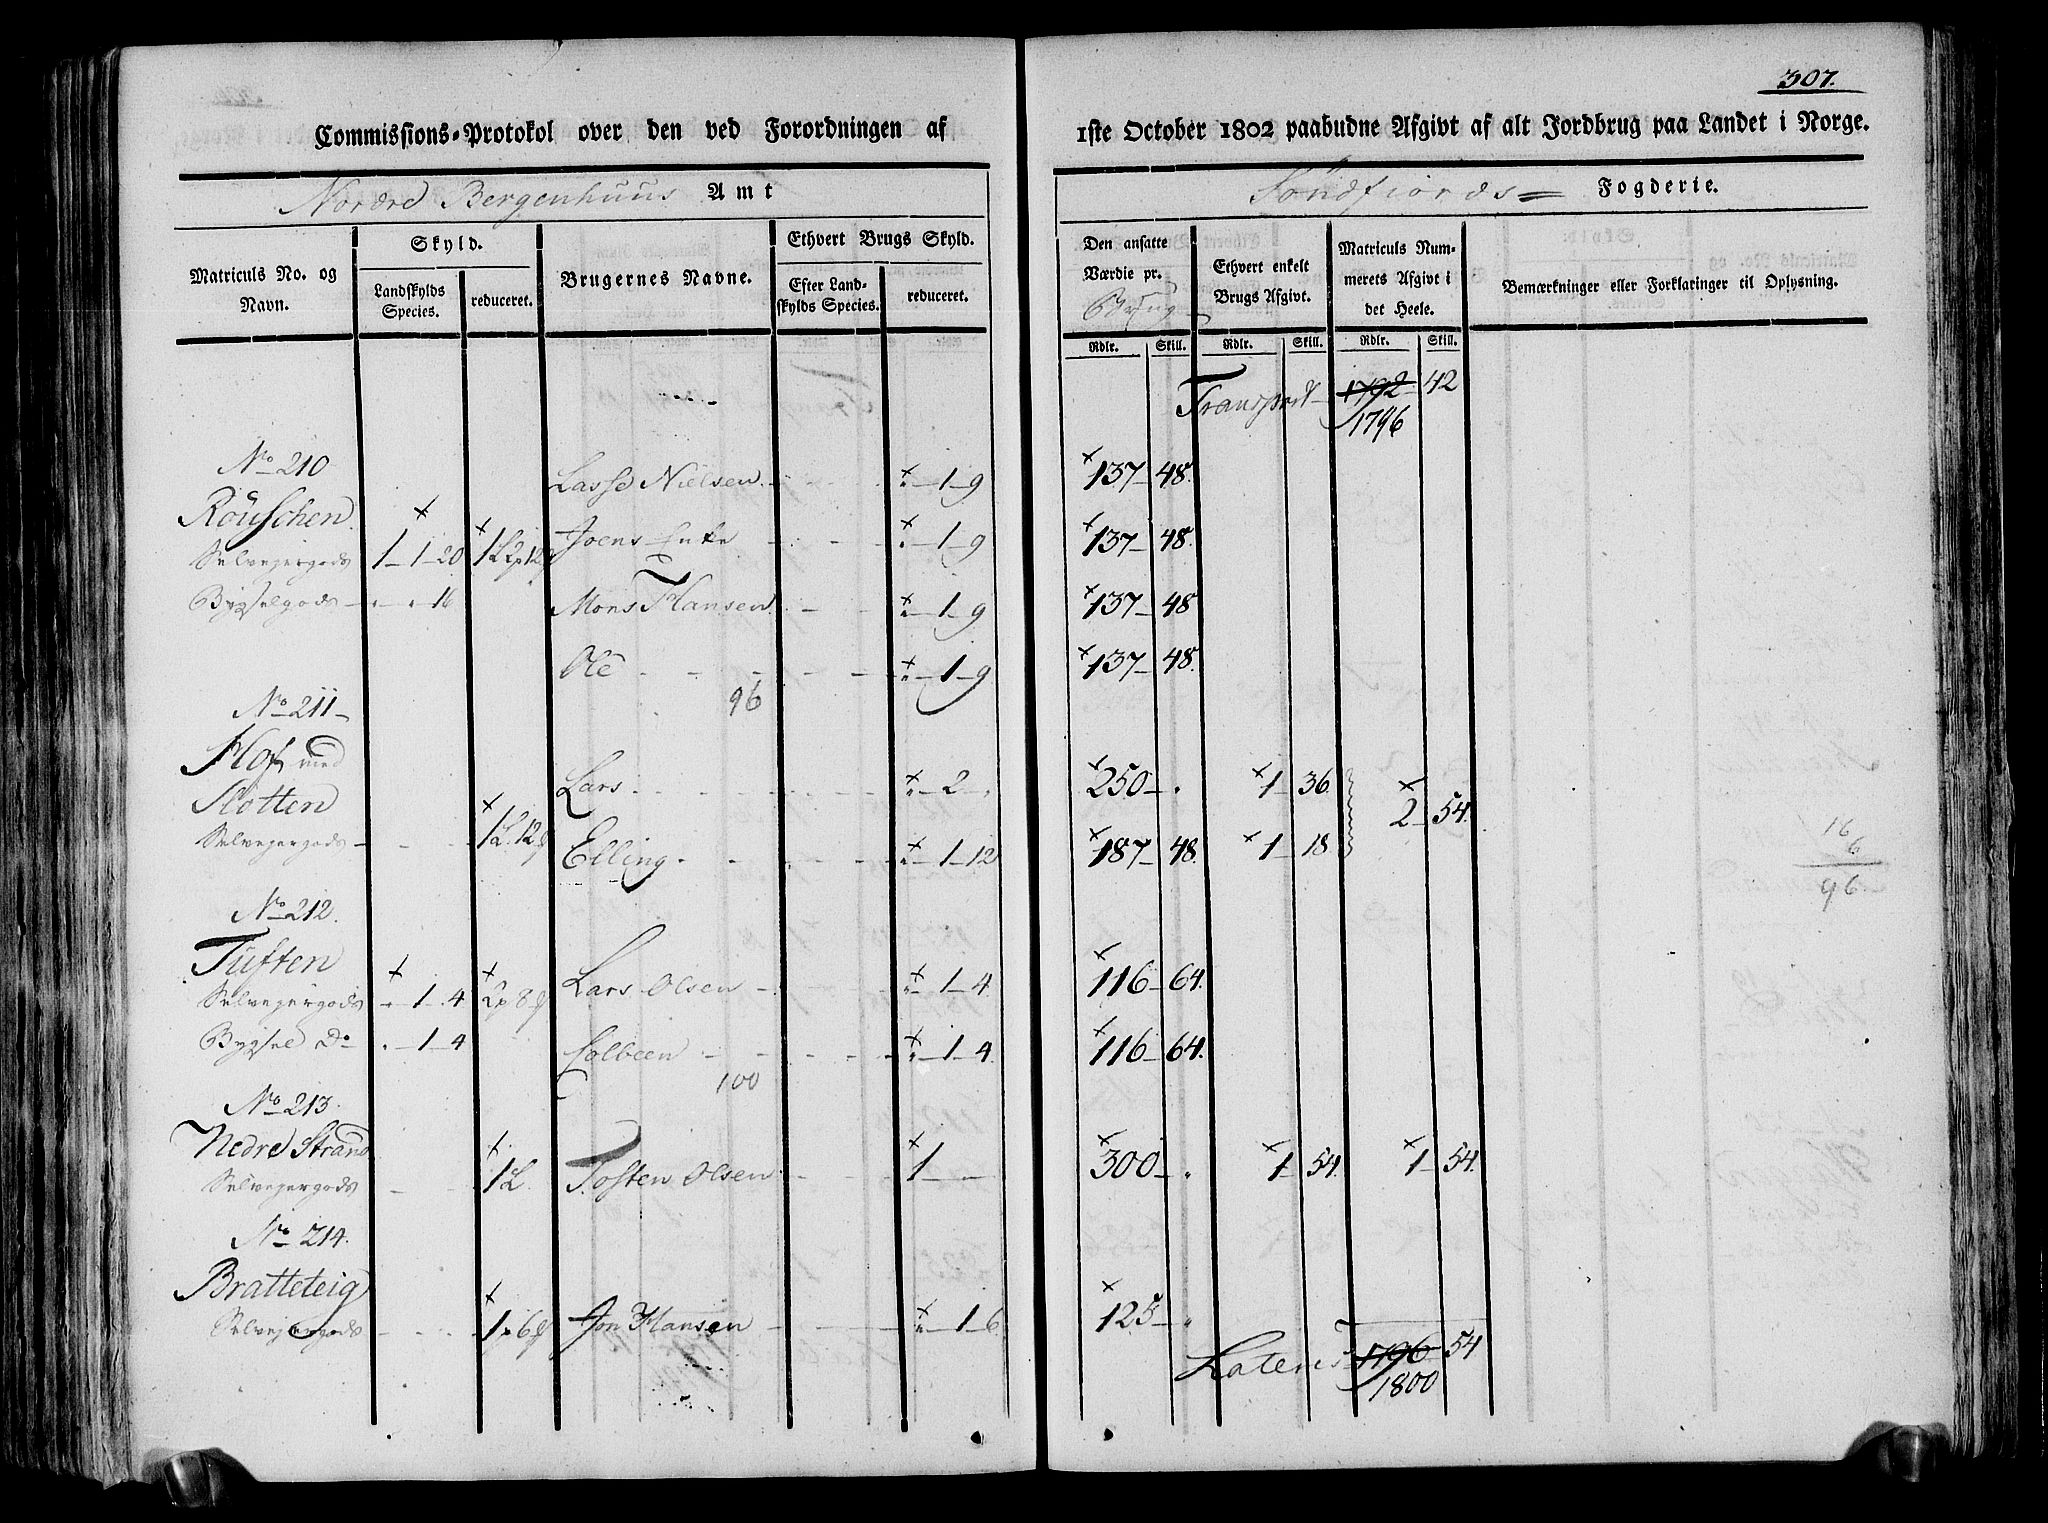 307.
Commissions-Protokol over den ved Forordningen af 1ste October 1802 paabudne Afgivt af alt Jordbrug paa Landet i Norge.
Nordre Bergenhuus Amt
Söndfiords Fogderie.
Matriculs No. og Navn.
Skyld.
Landskylds Species.
reduceret.
Brugernes Navne.
Ethvert Brugs Skyld.
Efter Landskylds Species.
reduceret.
Den ansatte Værdie pr. Brug
Ethvert enkelt Brugs Afgivt.
Matriculs Nummerets Afgivt i det Heele.
Bemærkninger eller Forklaringer til Oplysning.
Rdlr. Skill. Rdlr. Skill. Rdlr. Skill.
Transport 1792 42
1796
No 210 Lasse Nielsen 1 9 137 48
Röuschen
Selvejergods 1 1 20 1 Lp 12 Joens Enke 1 9 137 48
Bygselgods 16 Mons Hansen 1 9 137 48
Ole 1 9 137 48
96
No 211
Hof med
Slotten Lars 2 250 1 36
2 54
Selvejergods 1 L 12 Elling 1 12 187 48 1 18
16
6
96
No 212.
Tuften
Selvejergods 1 4 2 p 8 Lars Olsen 1 4 116 64
Bygsel Do 1 4 Colbeen 1 4 116 64
100
No 213
Nedre Strand
Selvejergods 1 L. Tosten Olsen 1 300 1 54 1 54
No 214.
Bratteteig
Selvejergods 1 6 Jon Hansen 1 6 125
Lateris 1796 54
1800